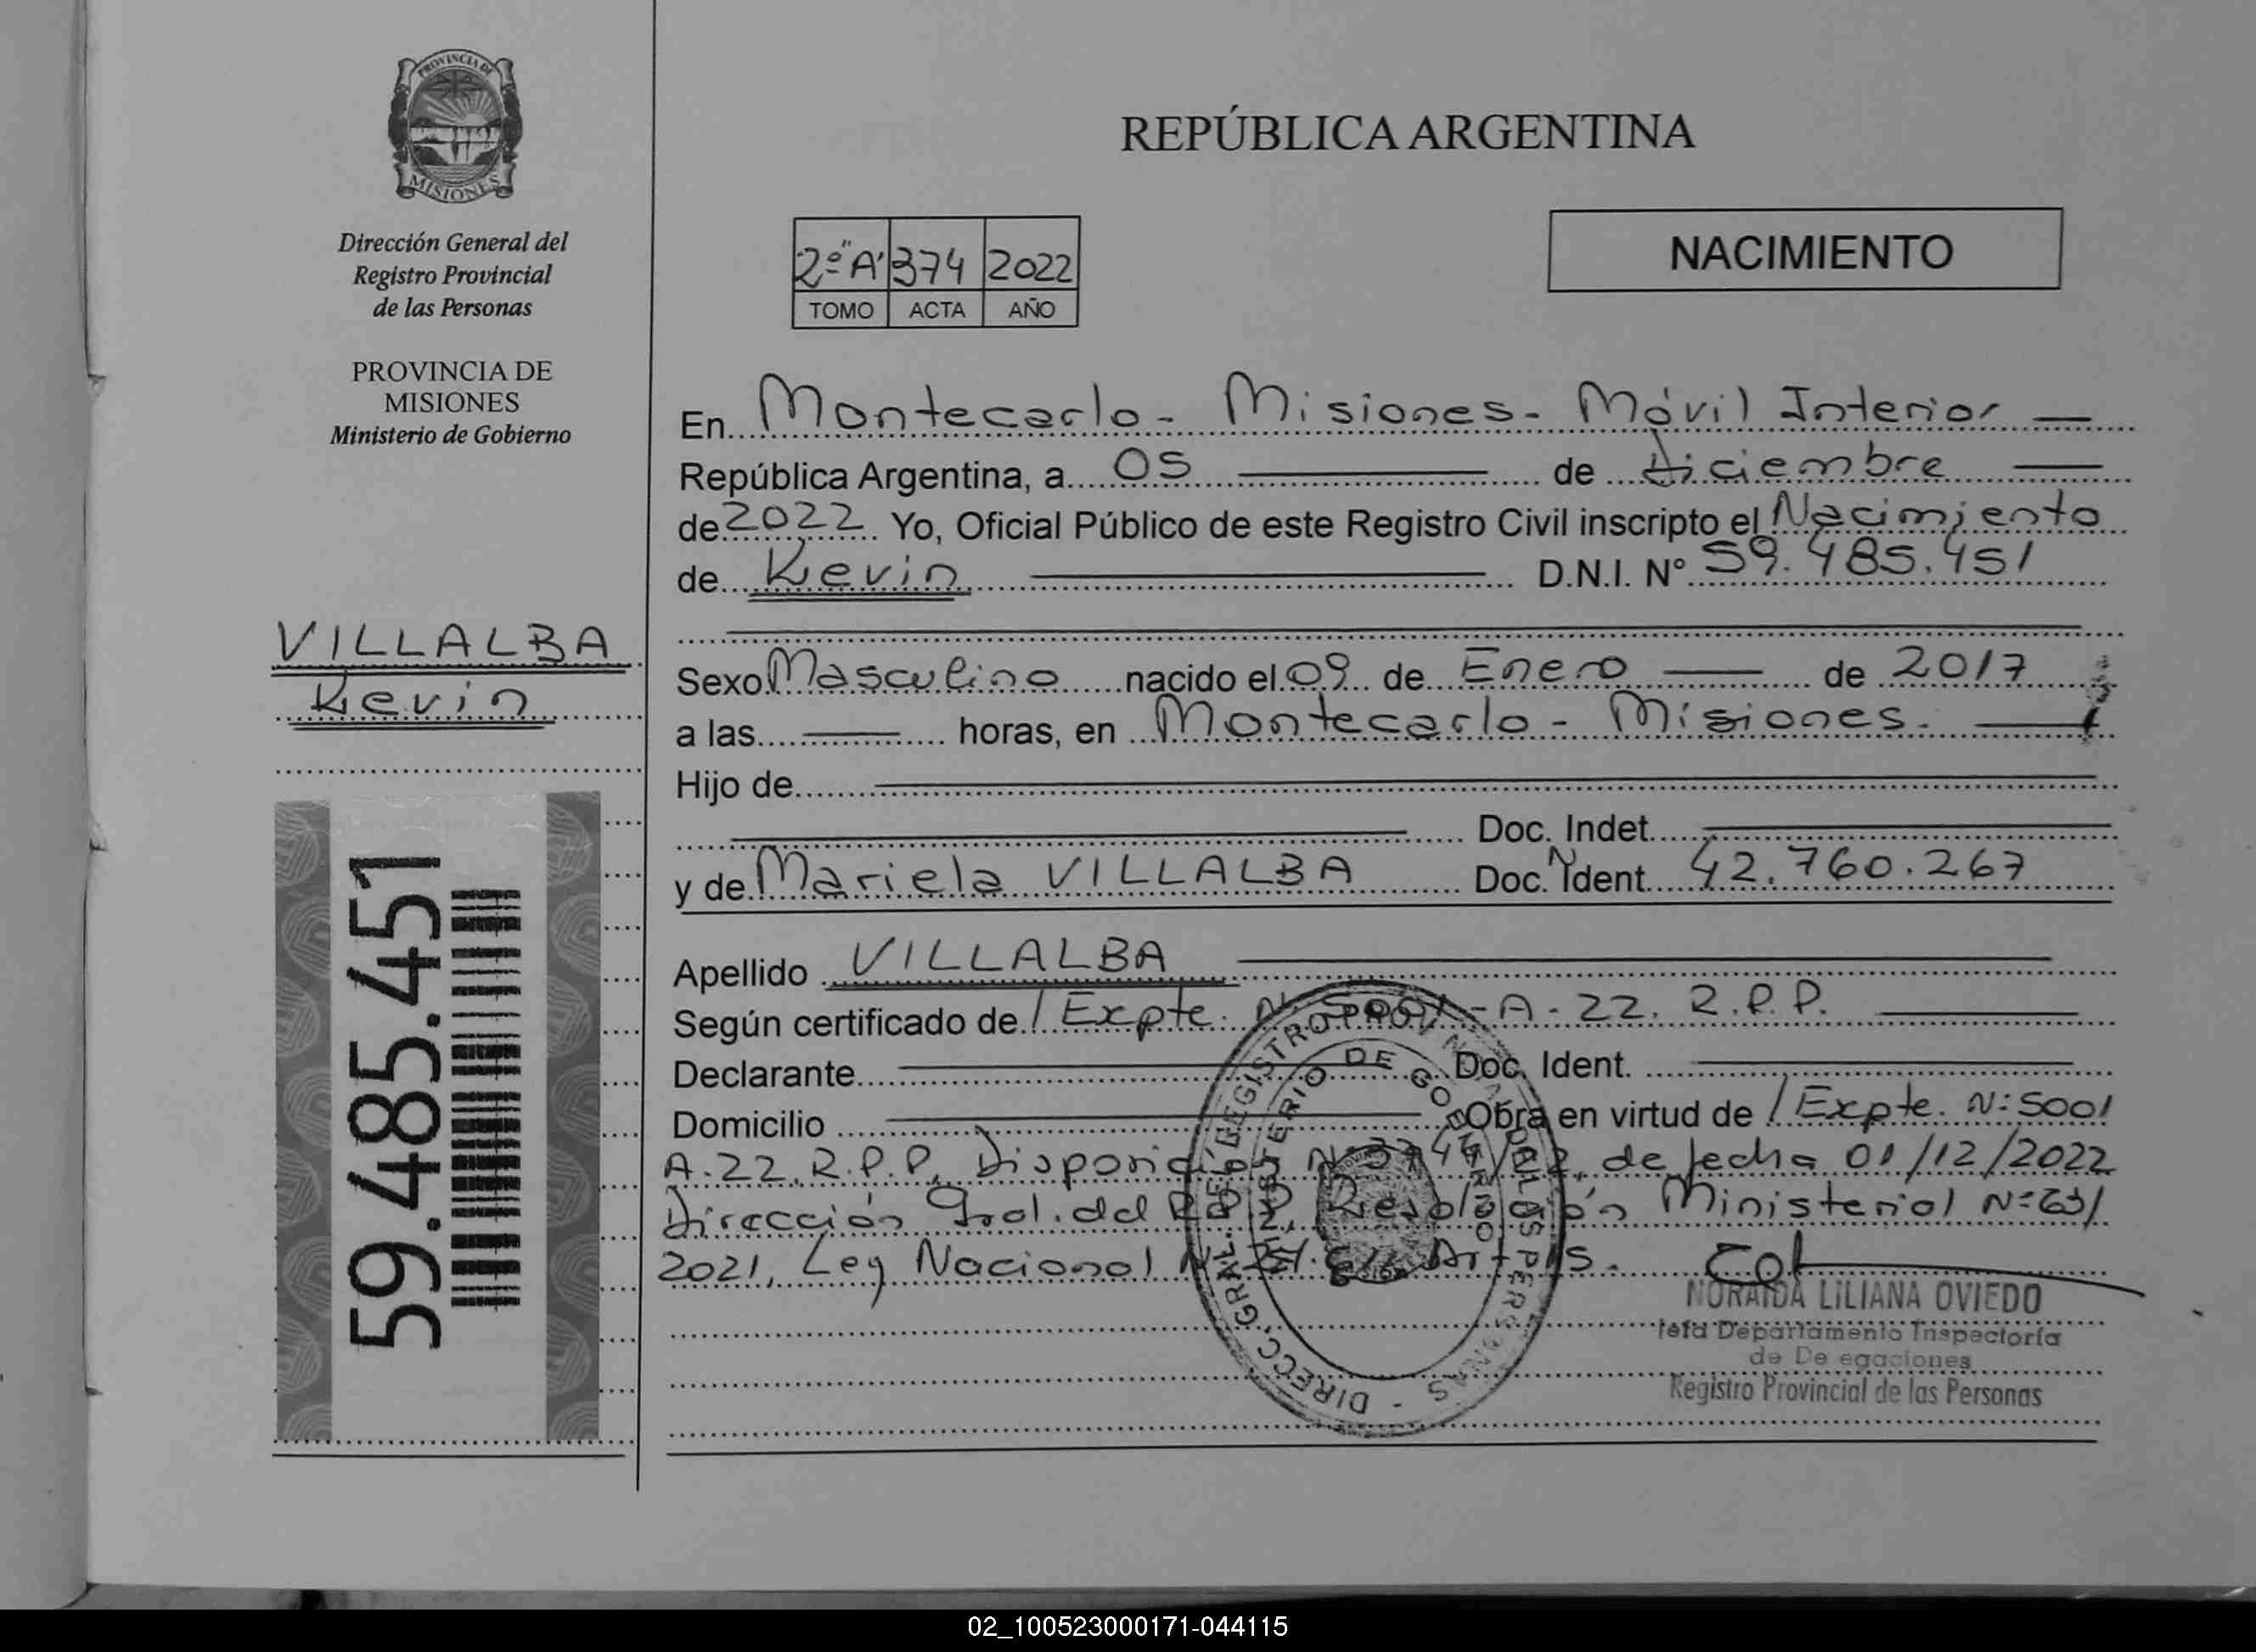 PROVINCIA DE
MISIONES
Dirección General del
Registro Provincial
de las Personas
PROVINCIA DE
MISIONES
Ministerio de Gobierno
VILLALBA
Kevin
59.485.451
REPÚBLICA ARGENTINA
2º "A" 374 2022
TOMO ACTA AÑO
NACIMIENTO
En Montecarlo - Misiones - Móvil Interior
República Argentina, a 05 de diciembre
de 2022 Yo, Oficial Público de este Registro Civil inscripto el Nacimiento
de Kevin D.N.I. N° 59.485.451
Sexo Masculino nacido el 09 de Enero de 2017
a las horas, en Montecarlo - Misiones.
Hijo de
Doc. Indet.
y de Mariela VILLALBA Doc. N Ident. 42.760.267
Apellido VILLALBA
Según certificado de / Expte. N: 5001 - A - 22. R.P.P.
Declarante Doc. Ident.
Domicilio Obra en virtud de / Expte. N: 5001
A-22. R.P.P, Disposición N: /22, de fecha 01/12/2022
Dirección Gral. del R.P.P, Resolución Ministerial N: 63/
2021, Ley Nacional Art. 15.
DIRECC. GRAL. DEL REGISTRO PROVINCIAL DE LAS PERSONAS
MINISTERIO DE GOBIERNO
NORAIDA LILIANA OVIEDO
Jefa Departamento Inspectoría
de De egaciones
Registro Provincial de las Personas
02_100523000171-044115